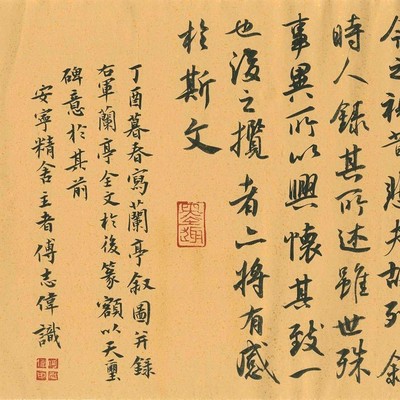 今之視昔悲夫故列敘
時人錄其所述雖世殊
事異所以興懷其致一
也後之攬者亦將有感
於斯文
丁酉暮春寫蘭亭叙圖并録
右軍蘭亭全文於後篆額以天璽
碑意於其前
安寧精舍主者傅志偉識